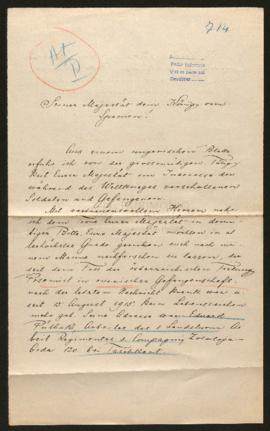 714
A+
D
Seiner Majestät dem König von
Spanien!
Aus einem ungarischen Blatte
erfuhr ich von der grossmütigen Tätig-
keit Eurer Majestät im Interesse der
während des Weltkrieges verschollenen
Soldaten und Gefangenen.
Mit vertrauensvollem Herzen nahe
ich dem Eurer Majestät in demü-
tiger Bitte, Eure Majestät möchten in al-
lerhöchster Gnade geruhen auch nach
meinem Manne nachforschen zu lassen, der
seit dem Fall der österreichischen Festung
Przemisl in russischer Gefangenschaft,
nach der letzten Nachricht krank war u.
seit 15 August 1915 kein Lebenszeichen
mehr gab. Seine Adresse war Eduard
des I Landsturm Ar-
beit Regimentes 2 Compagnie
120 bei Taschkent.